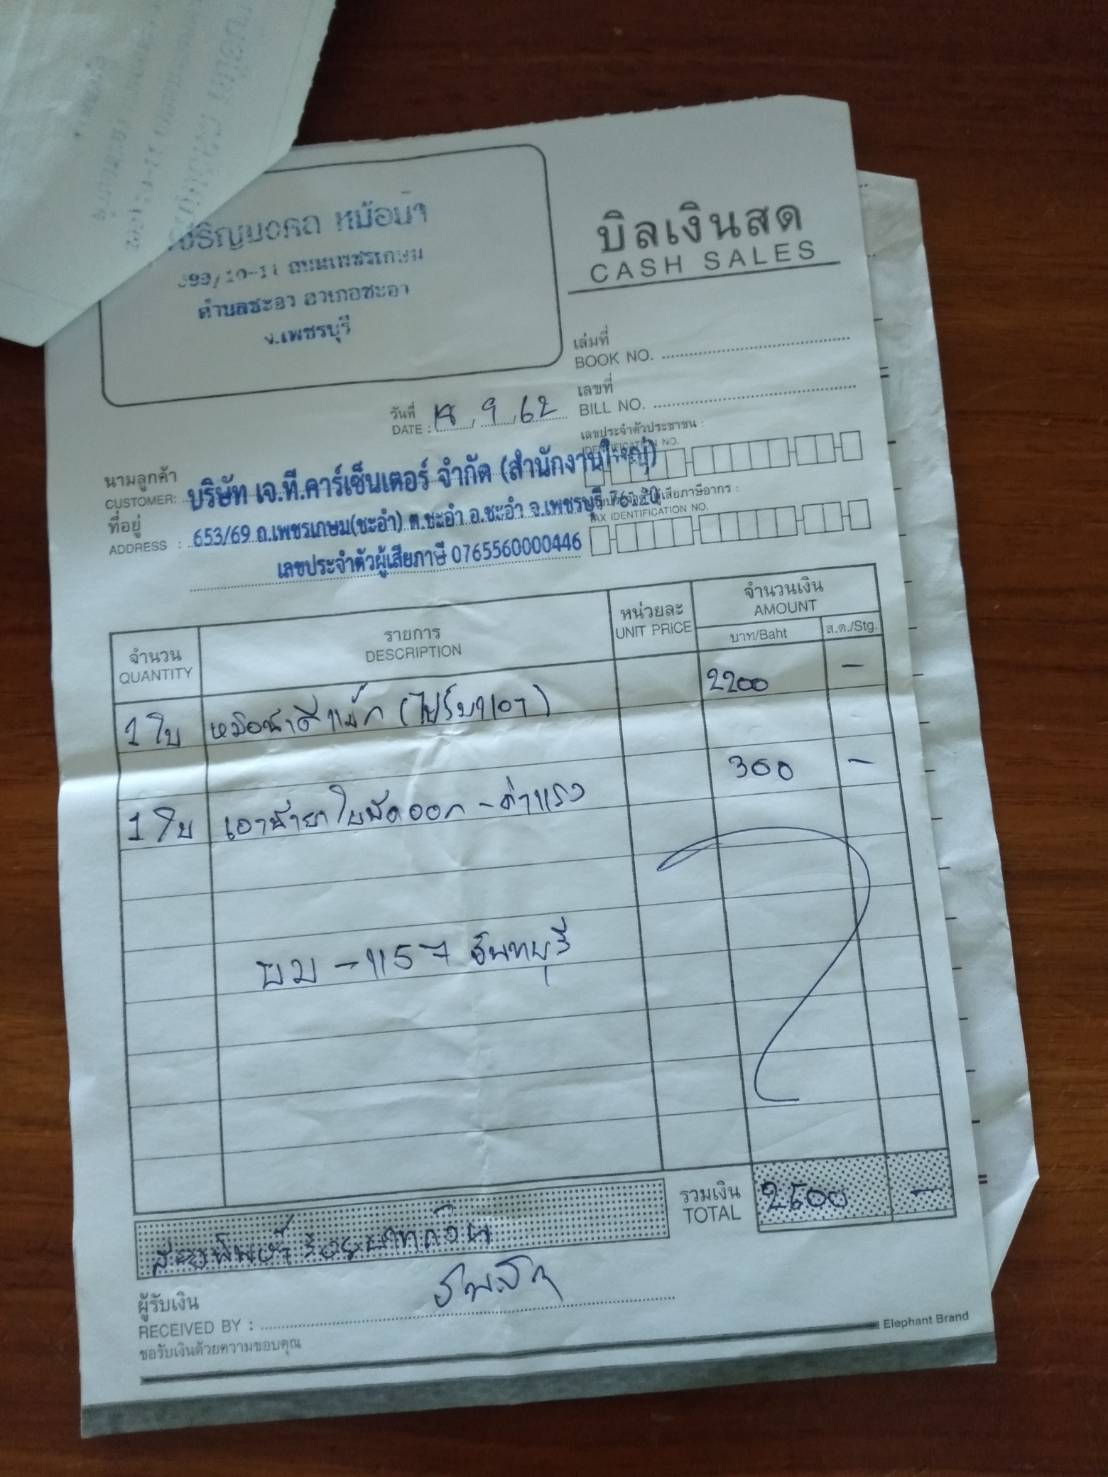 เจริญมงคล หม้อน้ำ
399/10-11 ถนนเพชรเกษม
ตำบลชะอำ อำเภอชะอำ
จ.เพชรบุรี
บิลเงินสด
CASH SALES
เล่มที่
BOOK NO.
เลขที่
BILL NO.
วันที่
DATE : 18, 9, 62
เลขประจำตัวประชาชน :
IDENTIFICATION NO.
นามลูกค้า
CUSTOMER: บริษัท เจ.ที.คาร์เซ็นเตอร์ จำกัด (สำนักงานใหญ่)
ที่อยู่
ADDRESS : 653/69 ถ.เพชรเกษม(ชะอำ) ต.ชะอำ อ.ชะอำ จ.เพชรบุรี 76120
เลขประจำตัวผู้เสียภาษี 0765560000446
ผู้เสียภาษีอากร :
TAX IDENTIFICATION NO.
จำนวน QUANTITY รายการ DESCRIPTION หน่วยละ UNIT PRICE จำนวนเงิน AMOUNT
บาท/Baht ส.ต./Stg.
1 ใบ หม้อน้ำดีแม็ก 2200 -
1 ใบ ใบพัดออก - ค่าแรง 300 -
ผม - 1157 จันทบุรี
รวมเงิน
TOTAL 2500 -
สองพันห้าร้อยบาทถ้วน
ผู้รับเงิน
RECEIVED BY :
ขอรับเงินด้วยความขอบคุณ
Elephant Brand